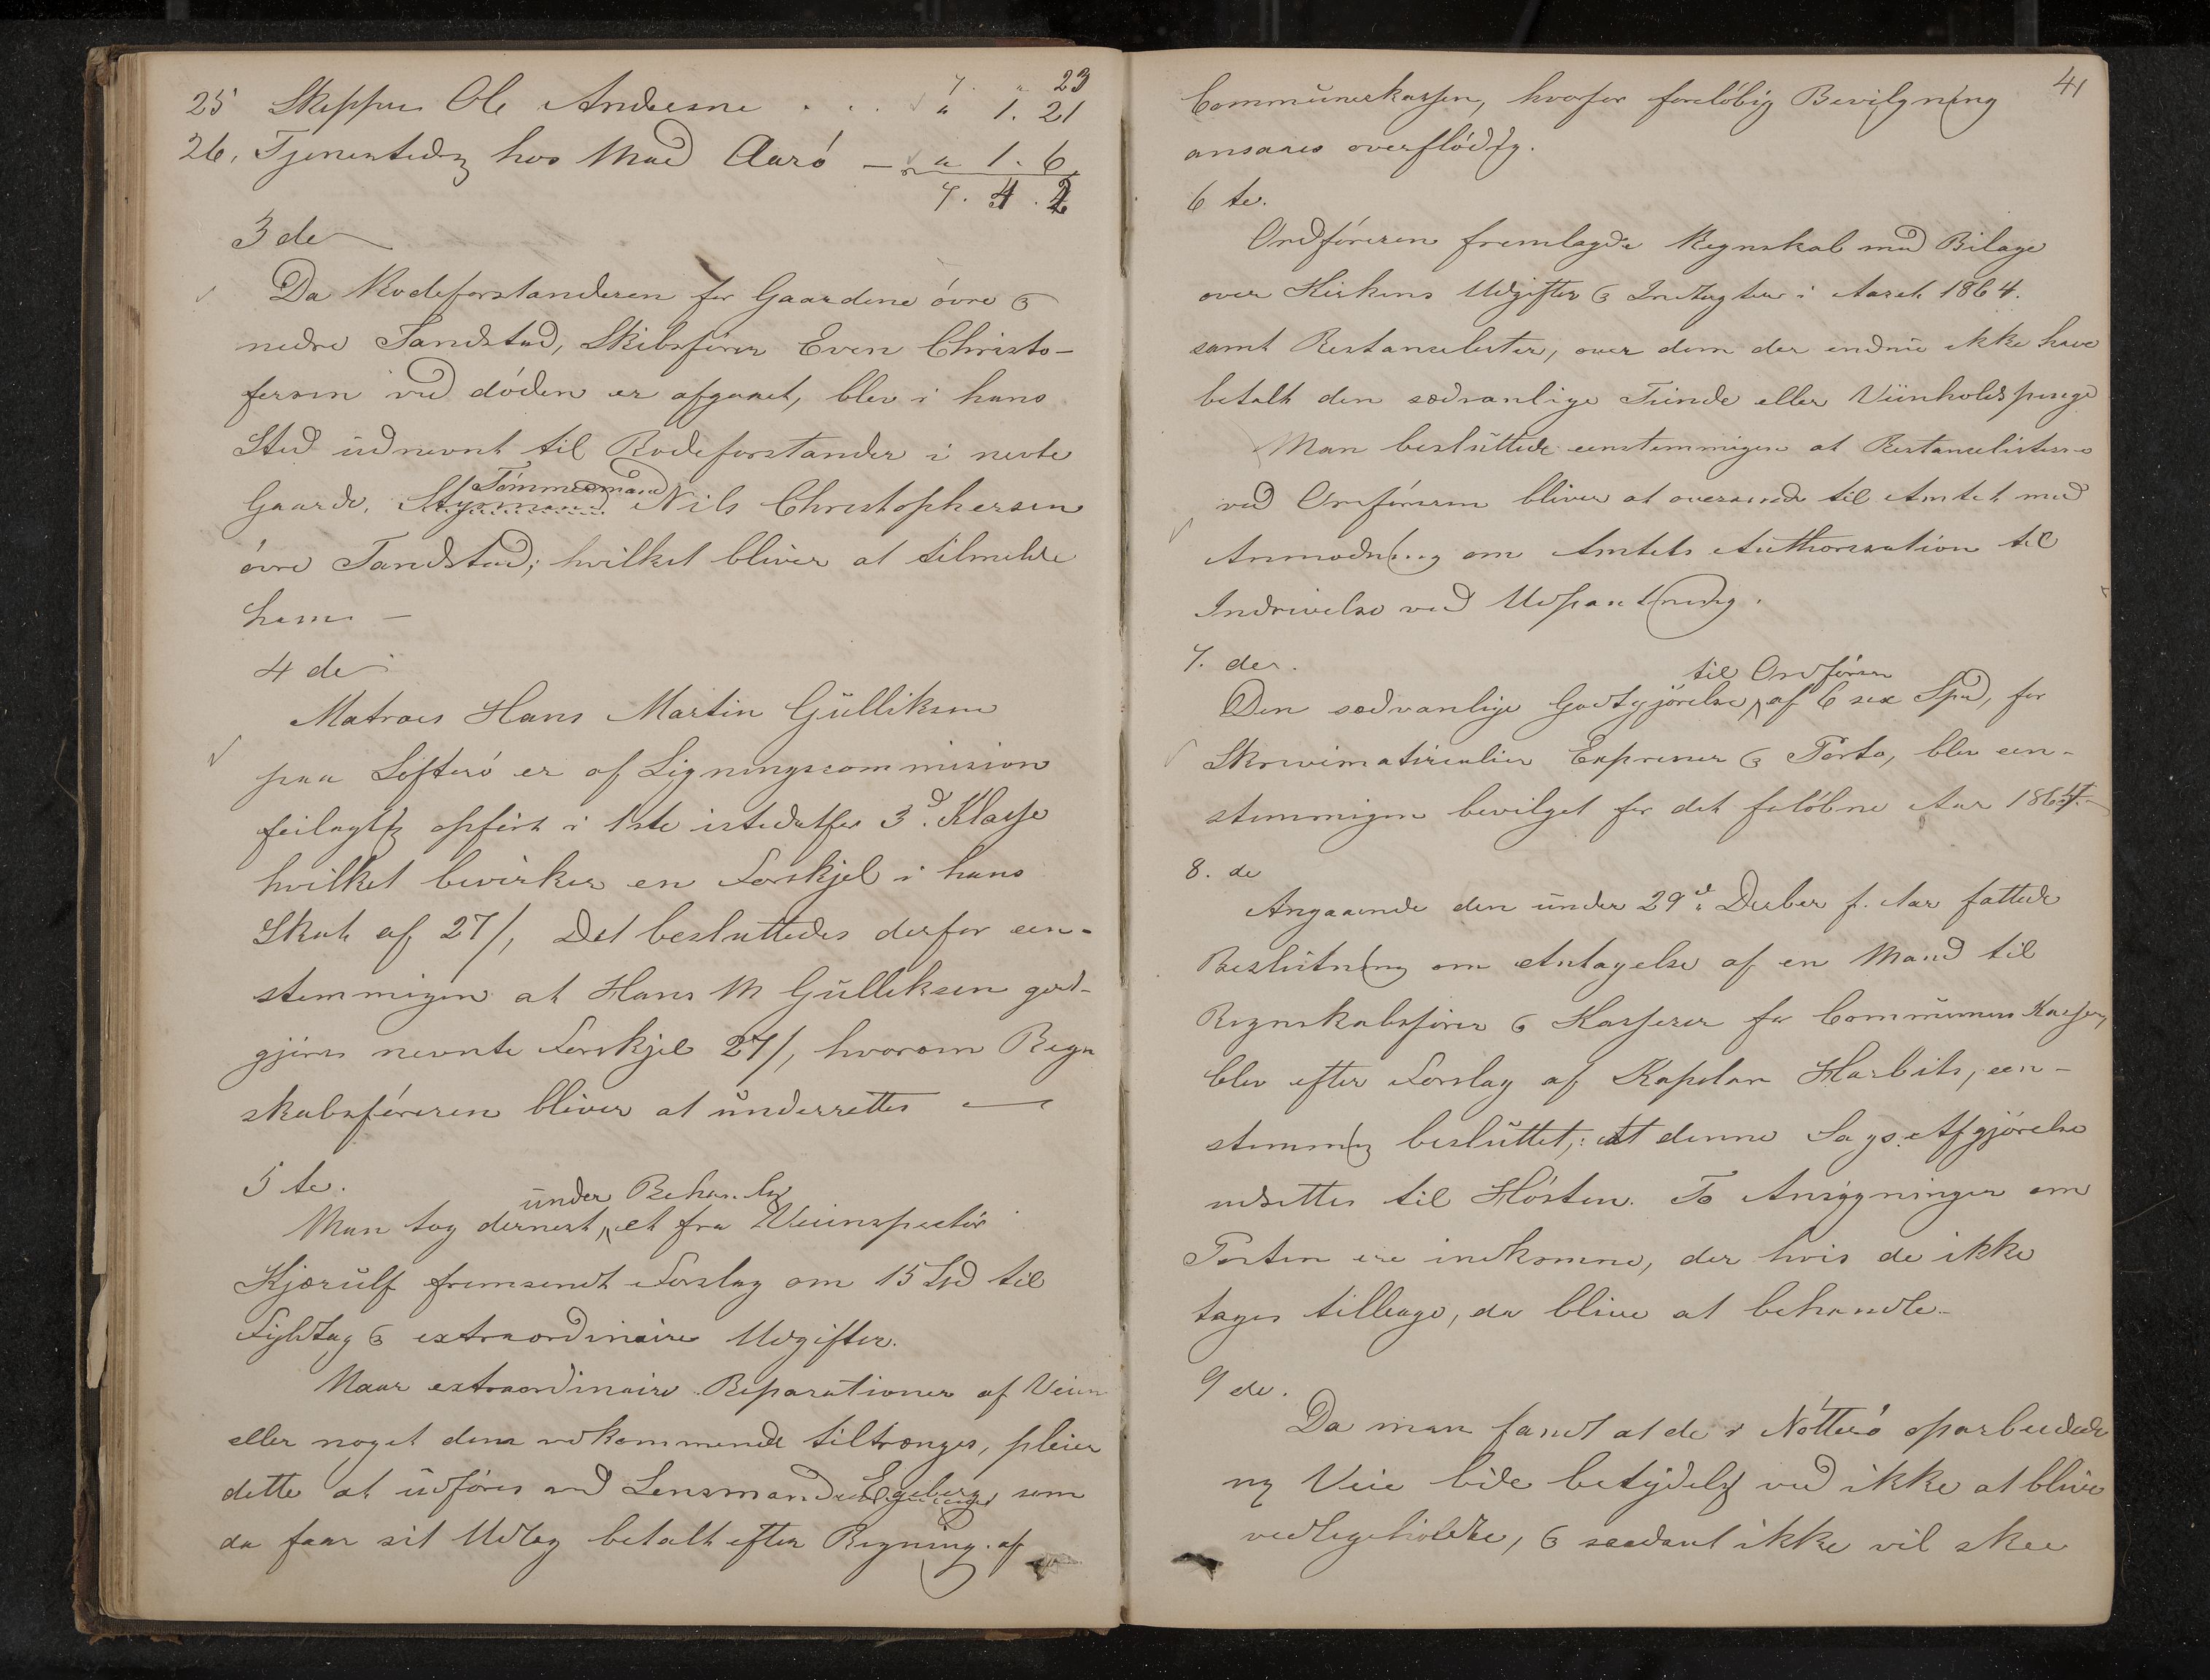 7. " 23
25 Skipper Ole Andersne . . . " 1. 21
26, Tjenestedr hos Mad Aarö — " 1. 6
7. 4. 2
3de
Da Rodeforstanderen for Gaardene övre &
nedre Sandstad, Skibsfører Even Christo-
fersen ved döden er afgaaet, blev i hans
Sted udnevnt til Rodeforstander i nevte
Tömmermand
Gaarde, Styrmand Nils Christophersen
övre Sandstad; hvilket bliver at tilmelde
ham —
4de
Matros Hans Martin Gulliksen
paa er af Ligningscommision
feilagtig opfört i 1ste istedetfor 3d. Klasse
hvilket bevirker en Forskjel i hans
Skat af 27/, Det besluttedes derfor een-
stemmigen at Hans M Gulliksen god-
gjöres nevnte Forskjel 27/, hvorom Regn
skabsföreren bliver at underrettes —
5te.
under Behandlg
Man tog dernest, et fra Veiinspectör
Kjærulf fremsendt Forslag om 15 Spd til
Fyldtag & extraordinaire Udgifter.
Naar extraordinaire Reparationer af Veien
eller noget denne vedkommende tiltrænges, pleier
dette at udföres ved Lensmand Egeberg, som
da faar sit Udlæg betalt efter Regning af
41
Communekassen, hvorfor foreløbig Bevilgning
ansaaes overflödig.
6te.
Ordföreren fremlagde Regnskab med Bilage
over Kirkens Udgifter & Indtægter i Aaret 1864.
samt Restancelister, over dem der endnu ikke have
betalt den sædvanlige Tiende eller Viinholdspenge
Man besluttede eenstemmigen at Restancelisterne
ved Ordföreren bliver at oversende til Amtet med
Anmodning om Amtets Authorisation til
Inddrivelse ved Udpantning.
7. de.
til Ordförer
Den sædvanlige Godtgjörelse, af 6 sex Spd, for
Skrivematerialier Expresser & Porto, blev een-
stemmigen bevilget for det forlöbne Aar 1864.
8. de
Angaaende den under 29d Decber f. Aar fattede
Beslutning om Antagelse af en Mand til
Regnskabsförer & Kasserer for Communens Kasser,
blev efter Forslag af Kapelan Harbits, een-
stemmig besluttet,: at denne Sags Afgjörelse
udsettes til Hösten. To Ansögninger om
Posten ere indkomne, der hvis de ikke
tages tilbage, da blive at behandle.
9de.
Da man fandt at de i Nötterö oparbeidede
ny Veie lide betydelig ved ikke at blive
vedligeholdte, & saadant ikke vil skee